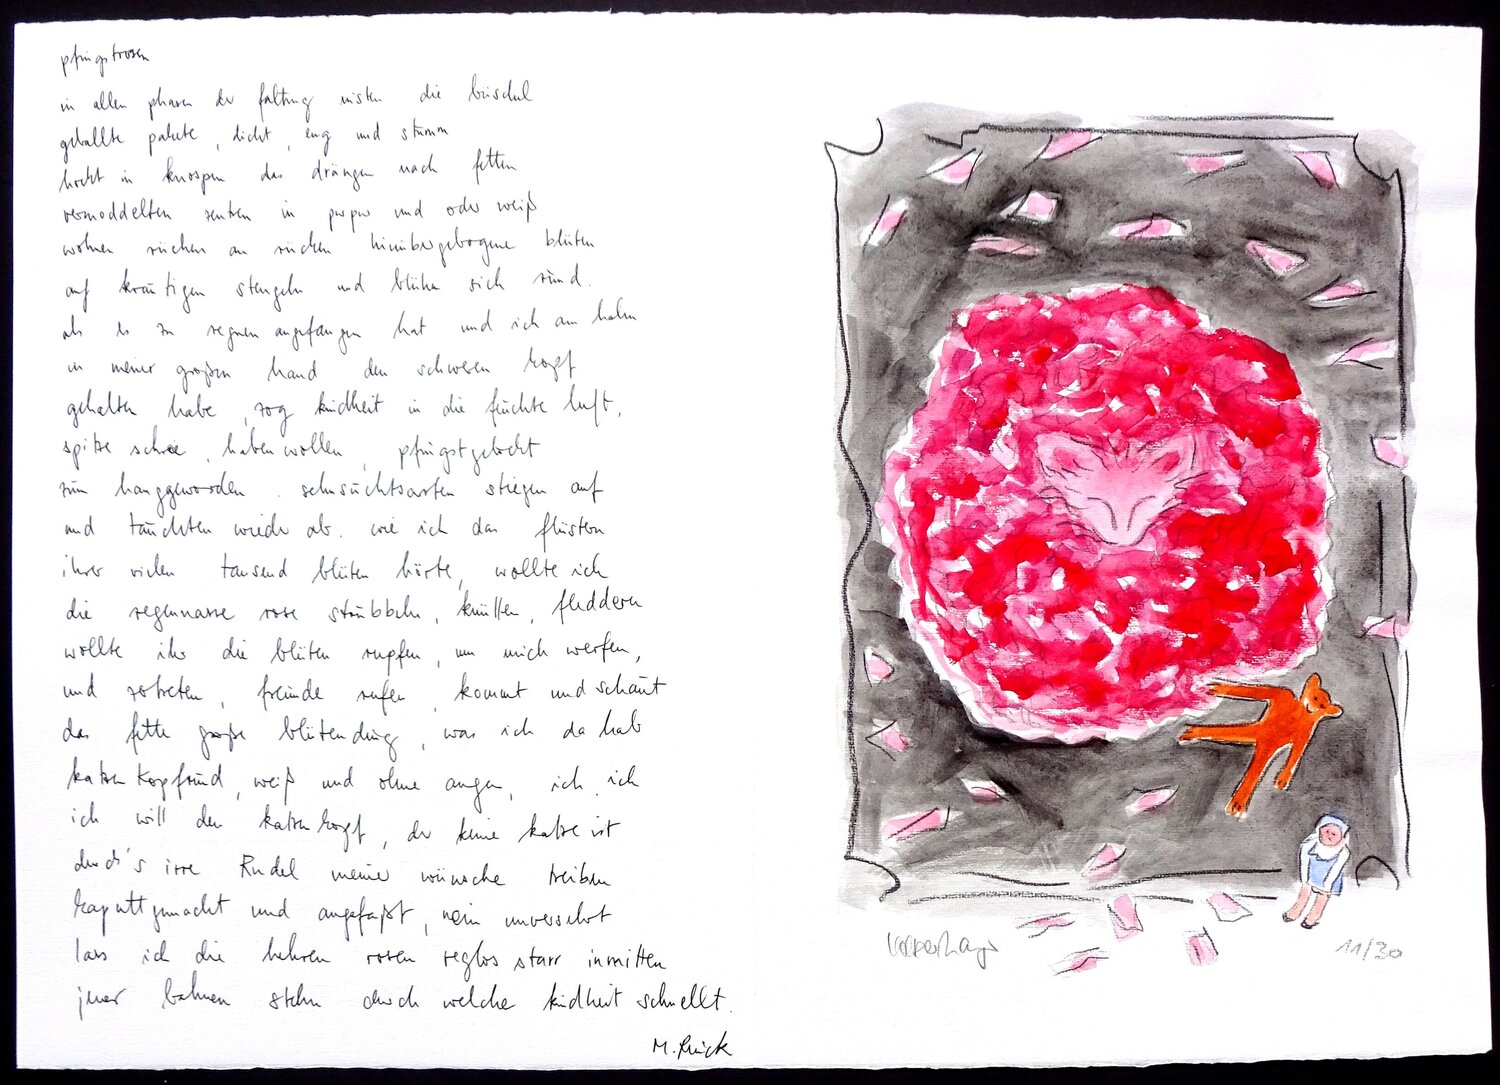 pfingstrosen
in allen phasen der faltung nisten die büschel
geballte pakete, dicht, eng und stumm
hockt in knospen das drängen nach fetten
vermoddelten zentren in purpur und oder weiß
wohnen rücken an rücken hinübergebogene blüten
auf kräutigen stengeln und blühn sich rund.
als es zu regnen angefangen hat und ich am halm
in meiner großen hand den schweren kopf
gehalten habe, zog kindheit in die feuchte luft,
spitze schreie, haben wollen, pfingstgelockt
zum
geworden. sehnsuchtsarten stiegen auf
und tauchten wieder ab. wie ich das flüstern
ihrer vielen tausend blüten hörte, wollte ich
die regennasse rose strubbeln, knüllen, fleddern
wollte ihr die blüten rupfen, um mich werfen,
und zertreten, freunde rufen, kommt und schaut
das fette große blütending, was ich da hab
katzenkopfrund, weiß und ohne augen, ich, ich
ich will den katzenkopf, der keine katze ist
durch's irre Rudel meiner wünsche treiben
kaputtgemacht und angefaßt, nein unversehrt
lass ich die hehren rosen reglos starr inmitten
jener bahnen stehn durch welche kindheit schnellt.
M. Rinck
11/30